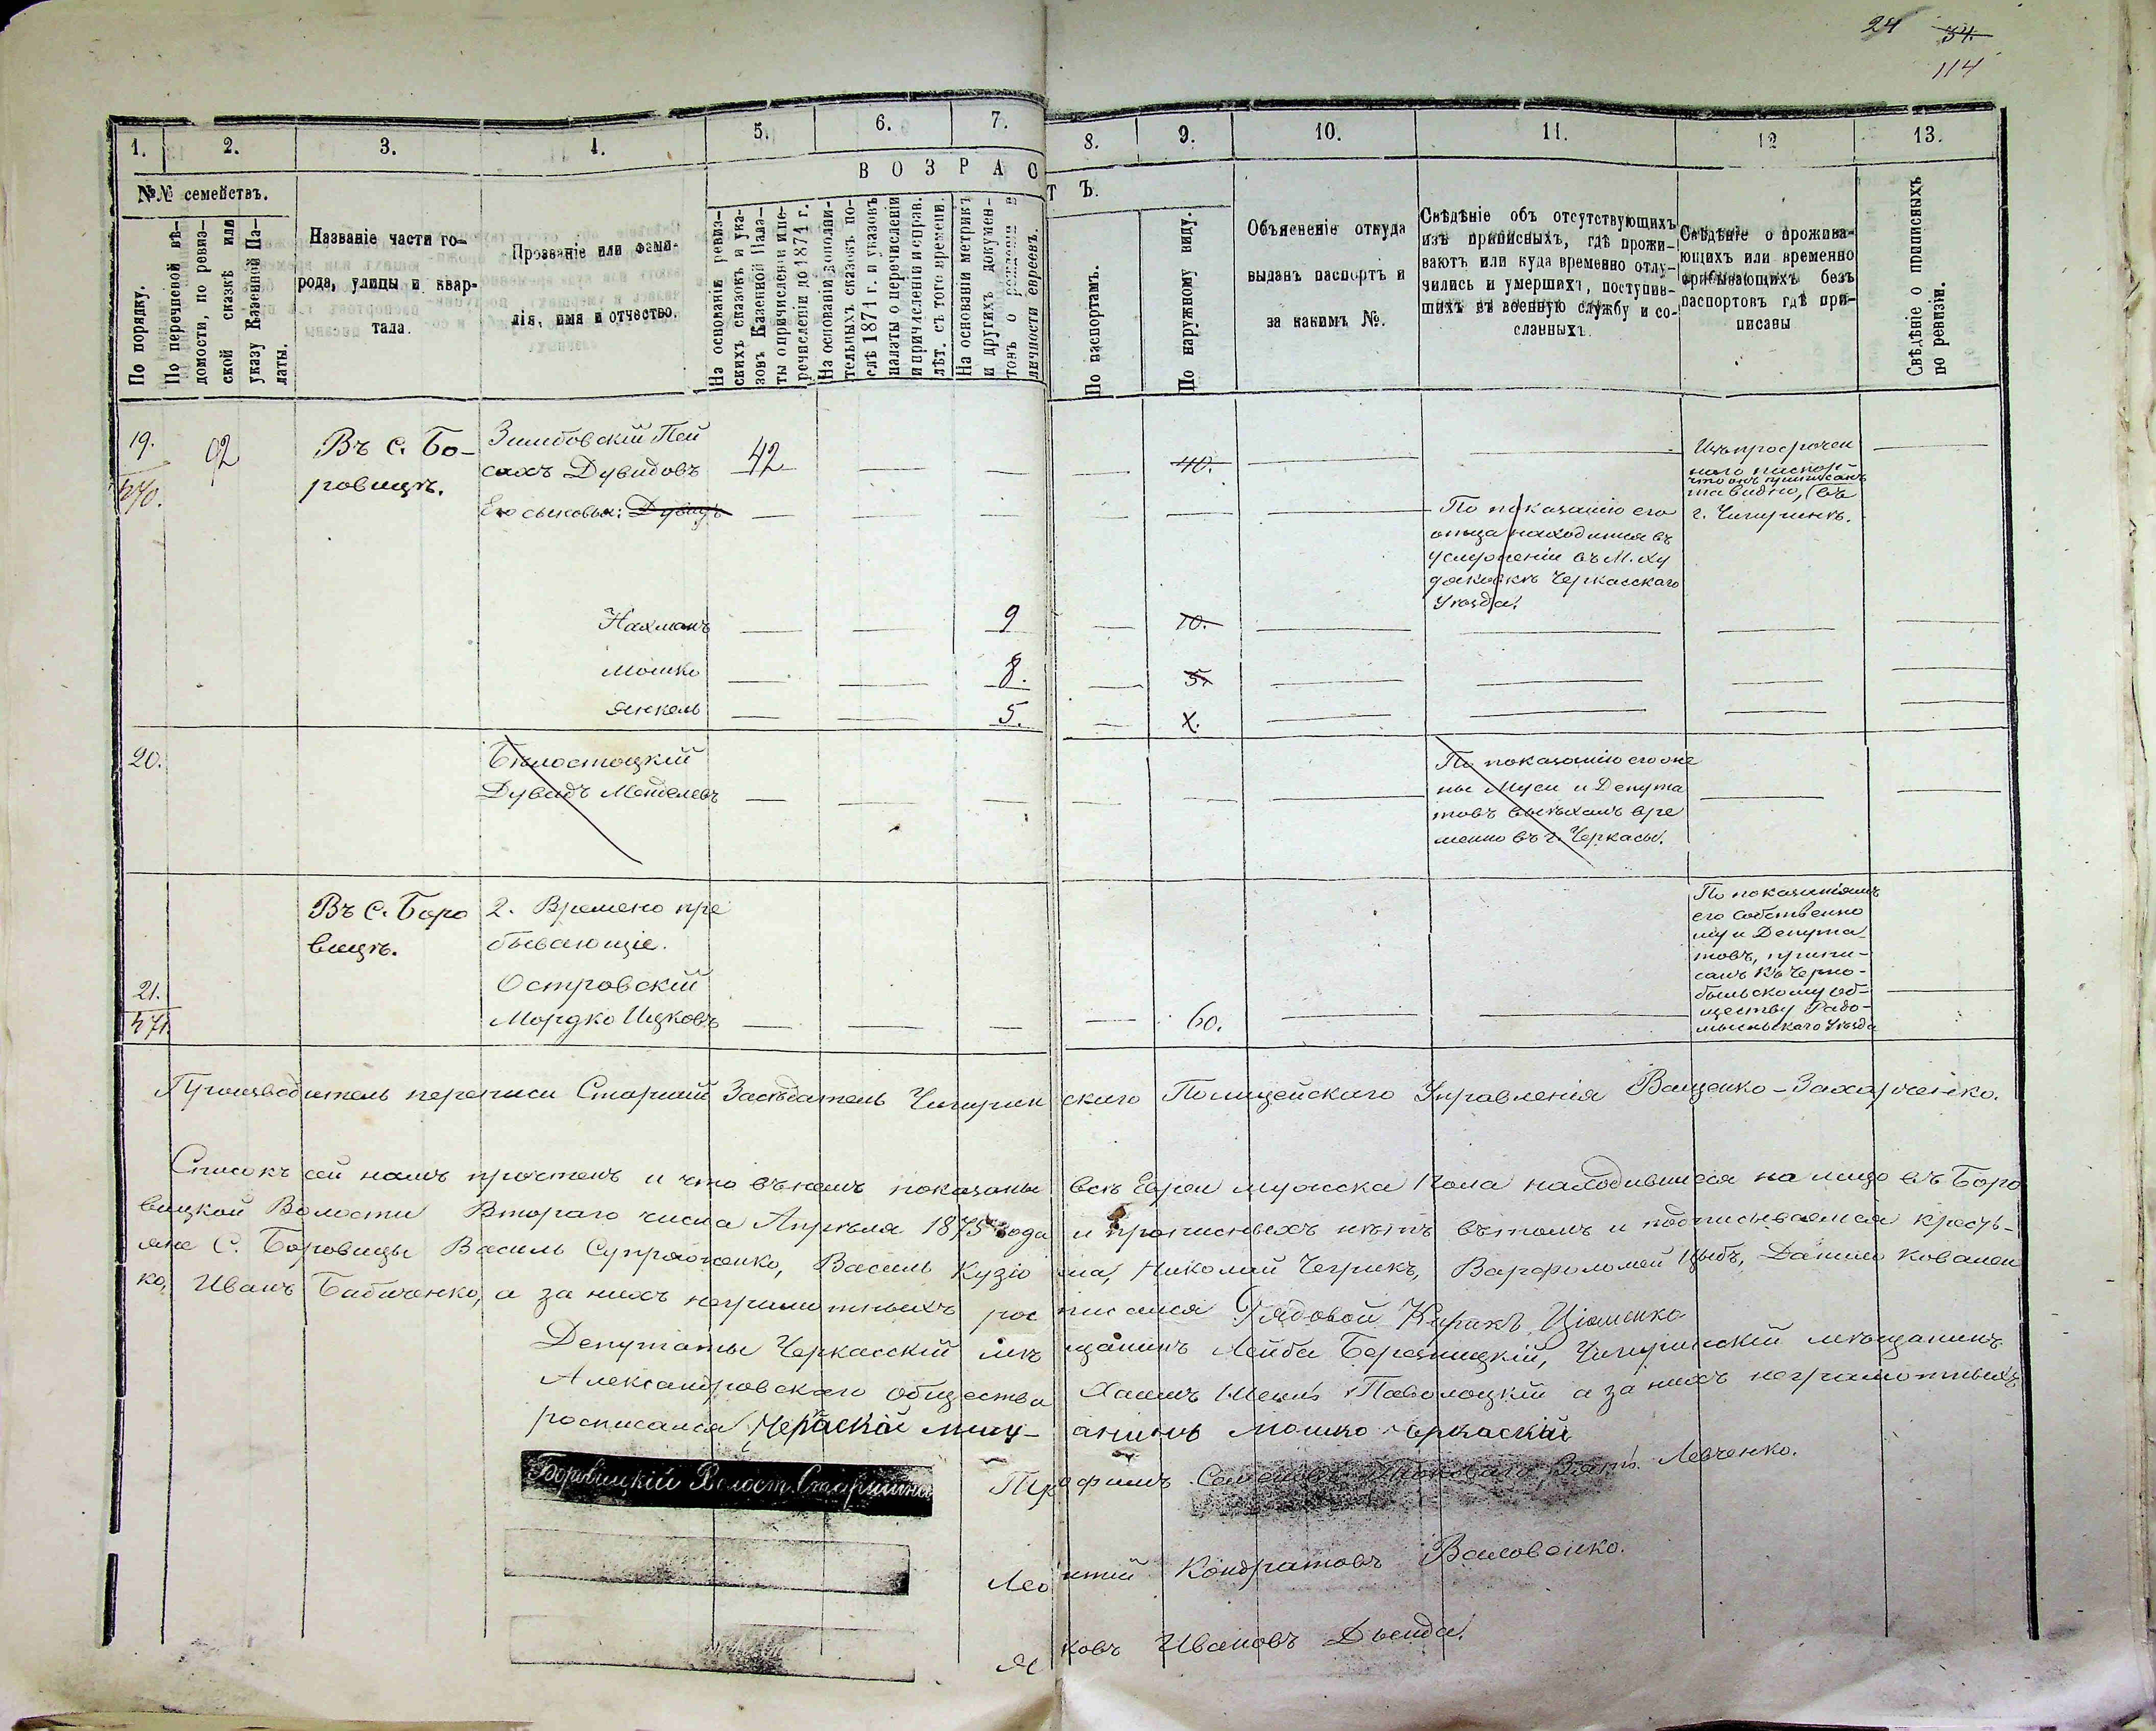 24 34.
114
1. 2. 3. 4. 5. 6. 7. 8. 9. 10. 11. 12 13.
№№ семействъ.
По порядку.
По перечневой вѣ-
домости, по ревиз-
ской сказкѣ или
указу Казенной Па-
латы.
Названіе части го-
рода, улицы и квар-
тала.
Прозваніе или фами-
лія, имя и отчество.
ВОЗРАСТЪ.
На основаніи ревиз-
скихъ сказокъ и ука-
зовъ Казенной Пала-
ты о причисленіи и пе-
речисленіи до 1874 г.
На основаніи дополни-
тельныхъ сказокъ по-
слѣ 1874 г. и указовъ
палаты о перечисленіи
и причисленіи и справ.
лѣт. съ того времени.
На основаніи метрикъ
и другихъ докумен-
товъ о рожденіи и
личности евреевъ.
По паспортамъ.
По наружному виду.
Объясненіе откуда
выданъ паспортъ и
за какимъ №.
Свѣдѣніе объ отсутствующихъ
изъ приписныхъ, гдѣ прожи-
ваютъ или куда временно отлу-
чились и умершихъ, поступив-
шихъ въ военную службу и со-
сланныхъ.
Свѣдѣніе о прожива-
ющихъ или временно
пребывающихъ безъ
паспортовъ гдѣ при-
писаны
Свѣдѣніе о приписныхъ
по ревизіи.
19. 92 Въ С. Бо- Зимбовскій Пей
470. ровицѣ. сахъ Дувидовъ 42 40.
Изъ просрочен
наго паспор-
что онъ приписанъ
та видно, въ
г. Чигиринѣ.
Его сыновья: Дувидъ
По показанію его
отца находится въ
услуженіи въ М. Ху
дяковкѣ Черкасскаго
Уѣзда.
Нахманъ 9 10.
Мошко 8. 5.
Янкель 5. X.
20. Бѣлостоцкій
Дувидъ Менделевъ
По показанію его же
ны Муси и Депута
товъ выѣхалъ вре
менно въ г. Черкасы.
Въ С. Боро
вицѣ.
2. Времено пре
бывающіе.
21. Островскій
471. Мордко Ицковъ 60.
По показаніямъ
его собственно
му и Депута-
товъ, припи-
санъ къ Черно-
быльскому об-
ществу Радо-
мысльскаго Уѣзда
Производитель переписи Старшій Засѣдатель Чигиринскаго Полицейскаго Управленія Ващенко-Захарченко.
Списокъ сей намъ прочтенъ и что въ немъ показаны всѣ Евреи мужска пола находившіеся на лицо въ Боро
вицкой Волости Втораго числа Апрѣля 1875 года и прописныхъ нѣтъ въ томъ и подписываемся крестья-
яне С. Боровицы Василь Супруненко, Василь Кузіо ма, Николай Чегрикъ, Варфоломей Цыбъ, Данило Ковален
ко, Иванъ Бабиченко, а за нихъ неграмотныхъ росписался Рядовой Кирикъ
Депутаты Черкасскій мѣщанинъ Лейба Березницкій, Чигиринскій мѣщанинъ
Александровскаго общества Хаимъ Паволоцкій а за нихъ неграмотныхъ
росписался Черкаскій мищ- анинъ Мошко Черкаскій
Боровицкій Волост. Старшина Трофимъ Левченко.
Леонтій Кондратовъ Воловенко.
Яковъ Ивановъ